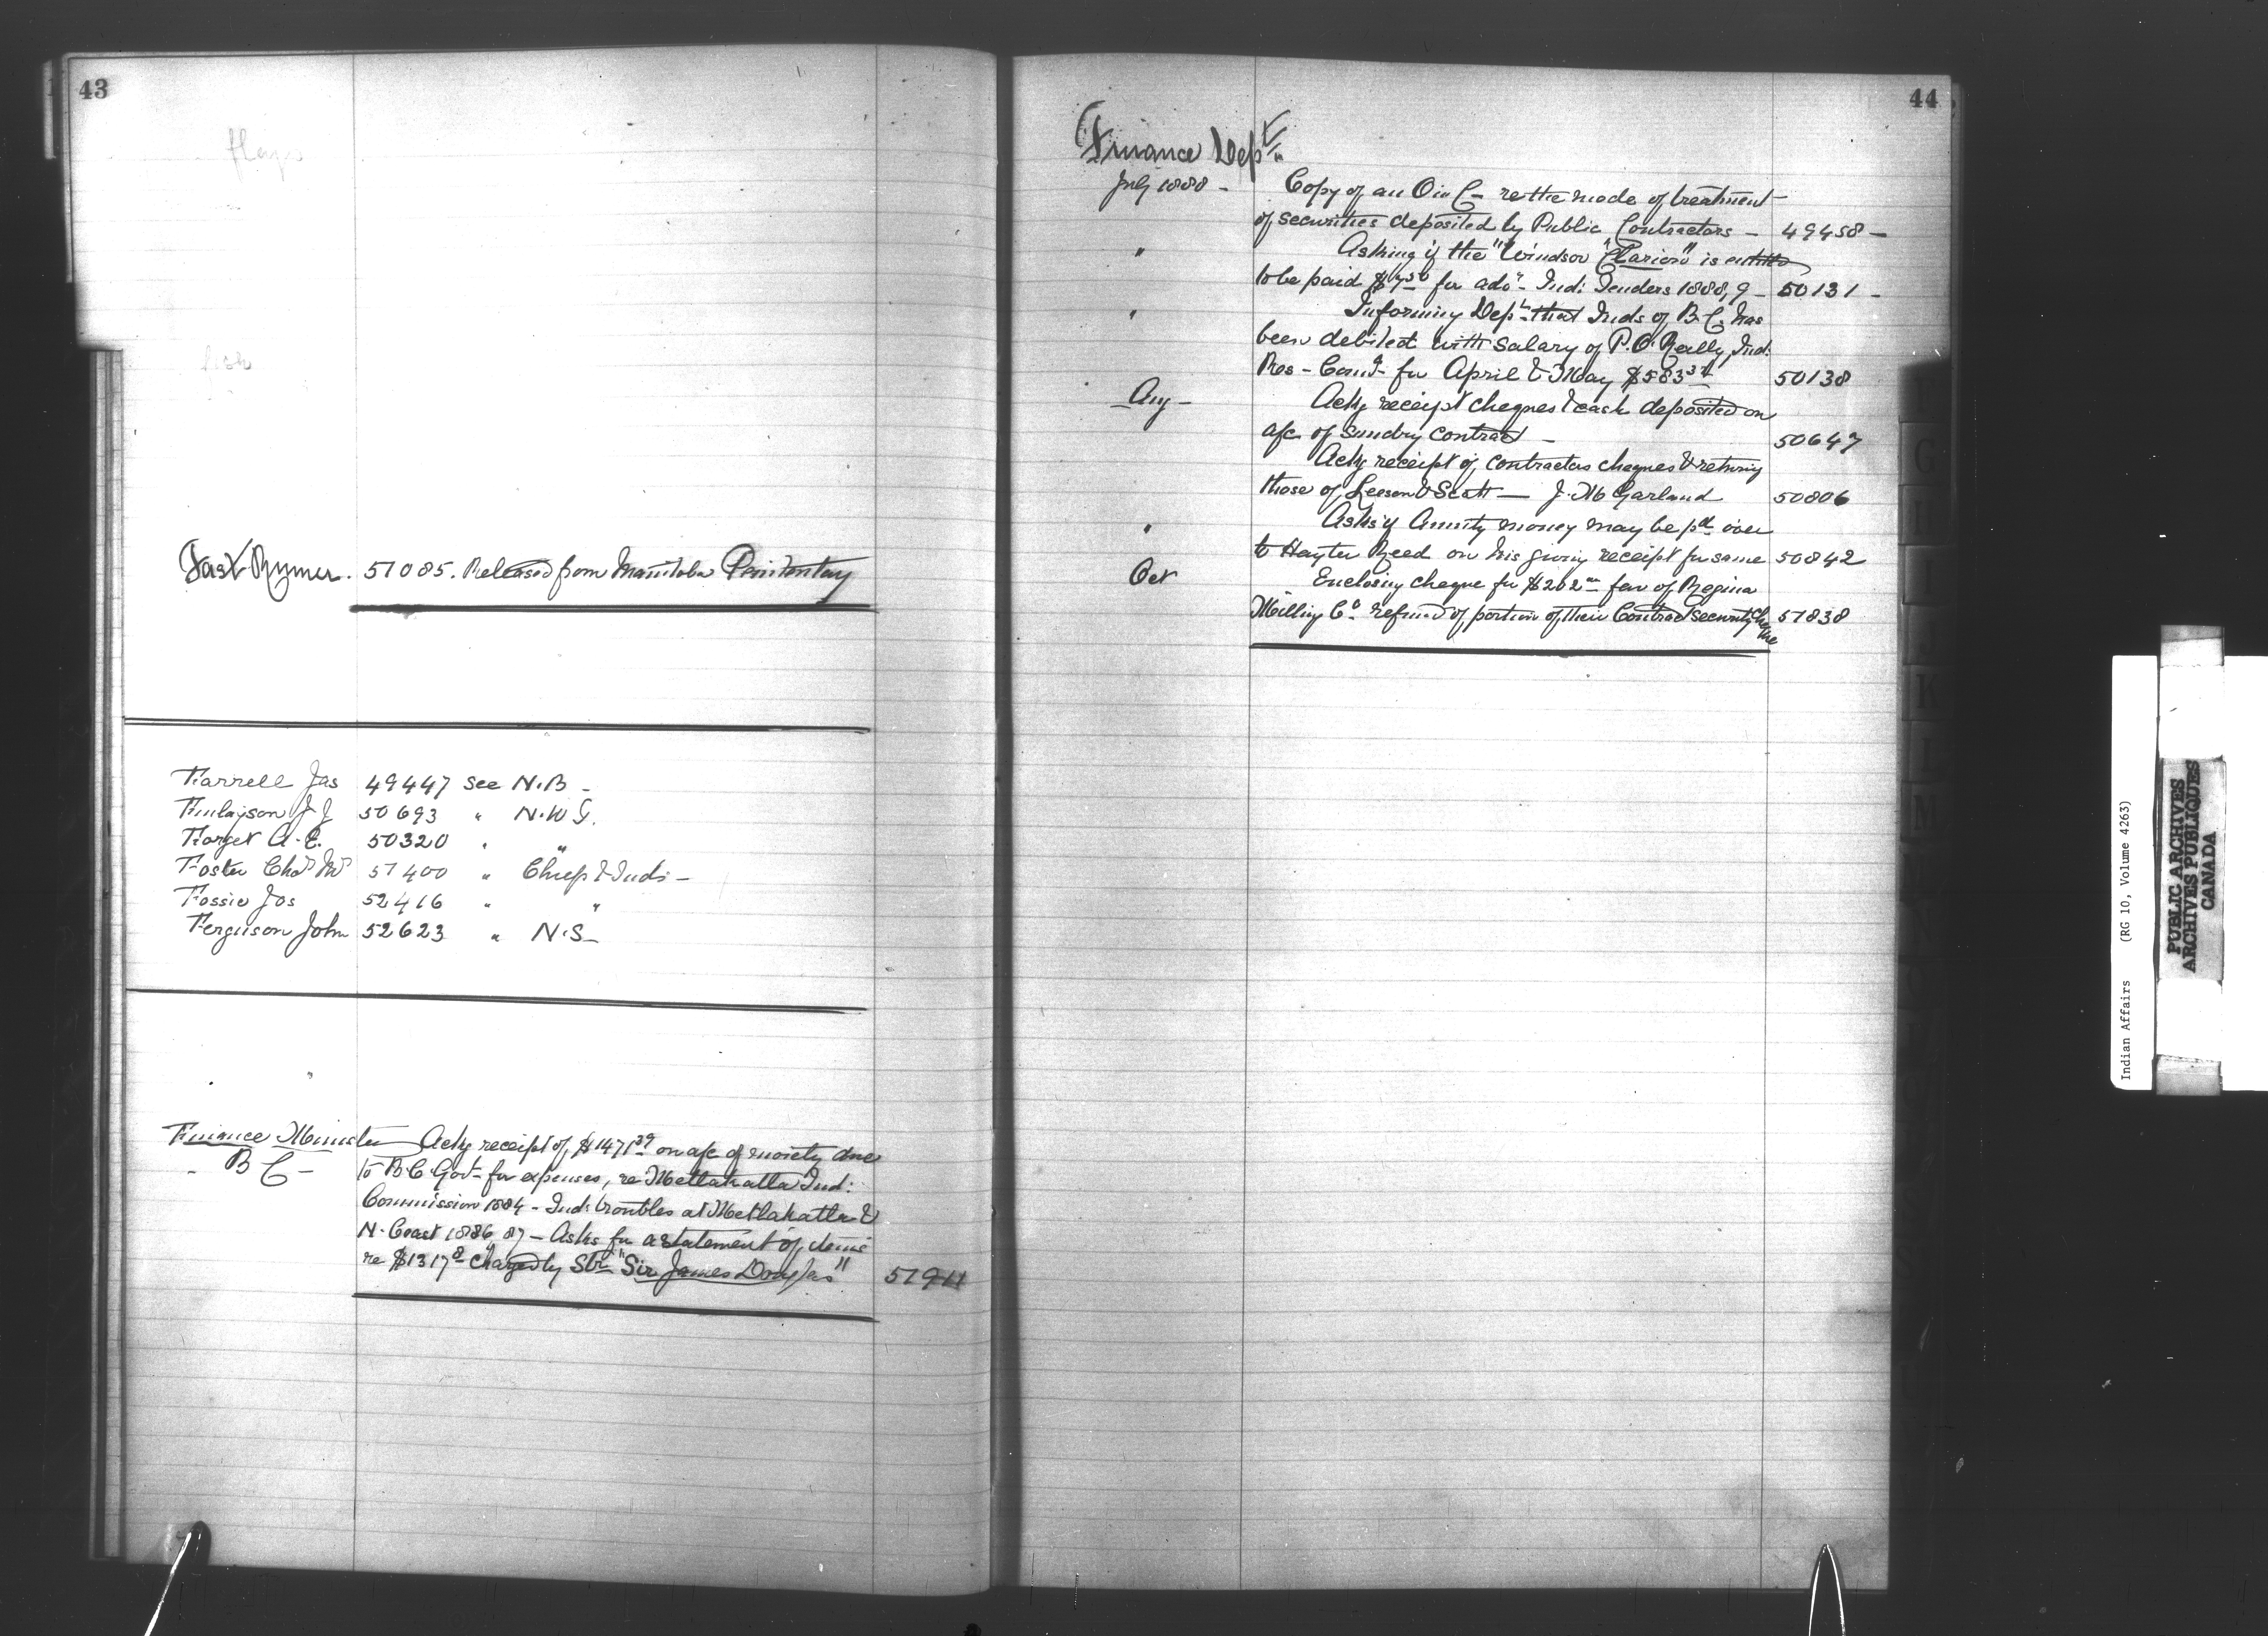 43
flags
fish
Fast Runner. 51085. Released from Manitoba Penitentary
Farrell Jas 49447 see N.B -
Finlayson J J 50693 " N.W.T.
Forget A. E. 50320 " "
Foster Chas W 51400 " Chiefs & Inds -
Fossie Jos 52416 " "
Ferguson John 52623 " N.S -
Finance Minister Ackg receipt of $1471 39 on a/c of moiety due
B C - to B.C. Govt for expenses, re Metlakatla Ind:
Commission 1884 - Ind: troubles at Metlakatla &
N. Coast 1886, 87 - Asks for a statement of items
re $1317 8 charged by Str "Sir James Douglas" 51911
44
Finance Dept.
July 1888 - Copy of an O in C - re the mode of treatment
of securities deposited by Public Contractors - 49458 -
" Asking if the "Windsor Clarion" is entitled
to be paid $7 50 for adv - Ind: Tenders 1888, 9 - 50131 -
" Informing Dept that Inds of B.C. has
been debited with salary of P. O'Reilly, Ind:
Res - Comr - for April & May $583 34 50138
Aug - Ackg receipt cheques & cash deposited on
a/c of sundry contract - 50647
Ackg receipt of contractors cheques & returning
those of Leeson & Scott - J. M Garland 50806
" Asks if Annuity money may be pd over
to Hayter Reed on his giving receipt for same 50842
Oct Enclosing cheque for $202 00 fav of Regina
Milling Co refund of portion of their Contract security cheque 51838
G
H
I
J
K
L
M
N
Indian Affairs (RG 10, Volume 4263)
PUBLIC ARCHIVES
ARCHIVES PUBLIQUES
CANADA